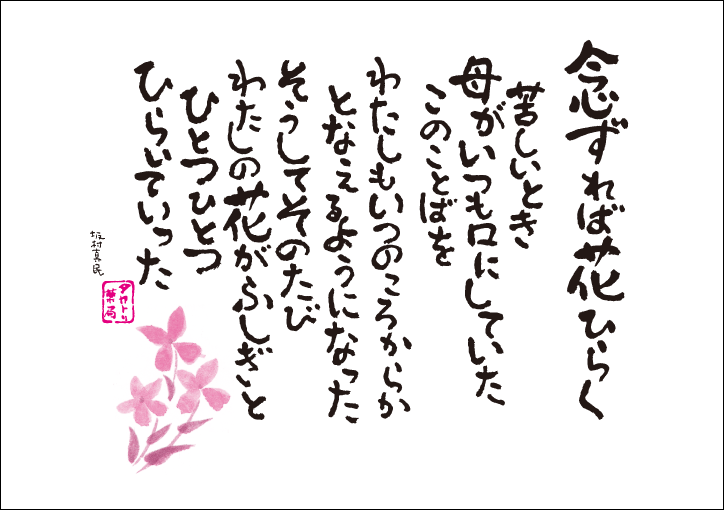 念ずれば花ひらく
苦しいとき
母がいつも口にしていた
このことばを
わたしもいつのころからか
となえるようになった
そうしてそのたび
わたしの花がふしぎと
ひとつひとつ
ひらいていった
坂村真民
タカトリ
薬局